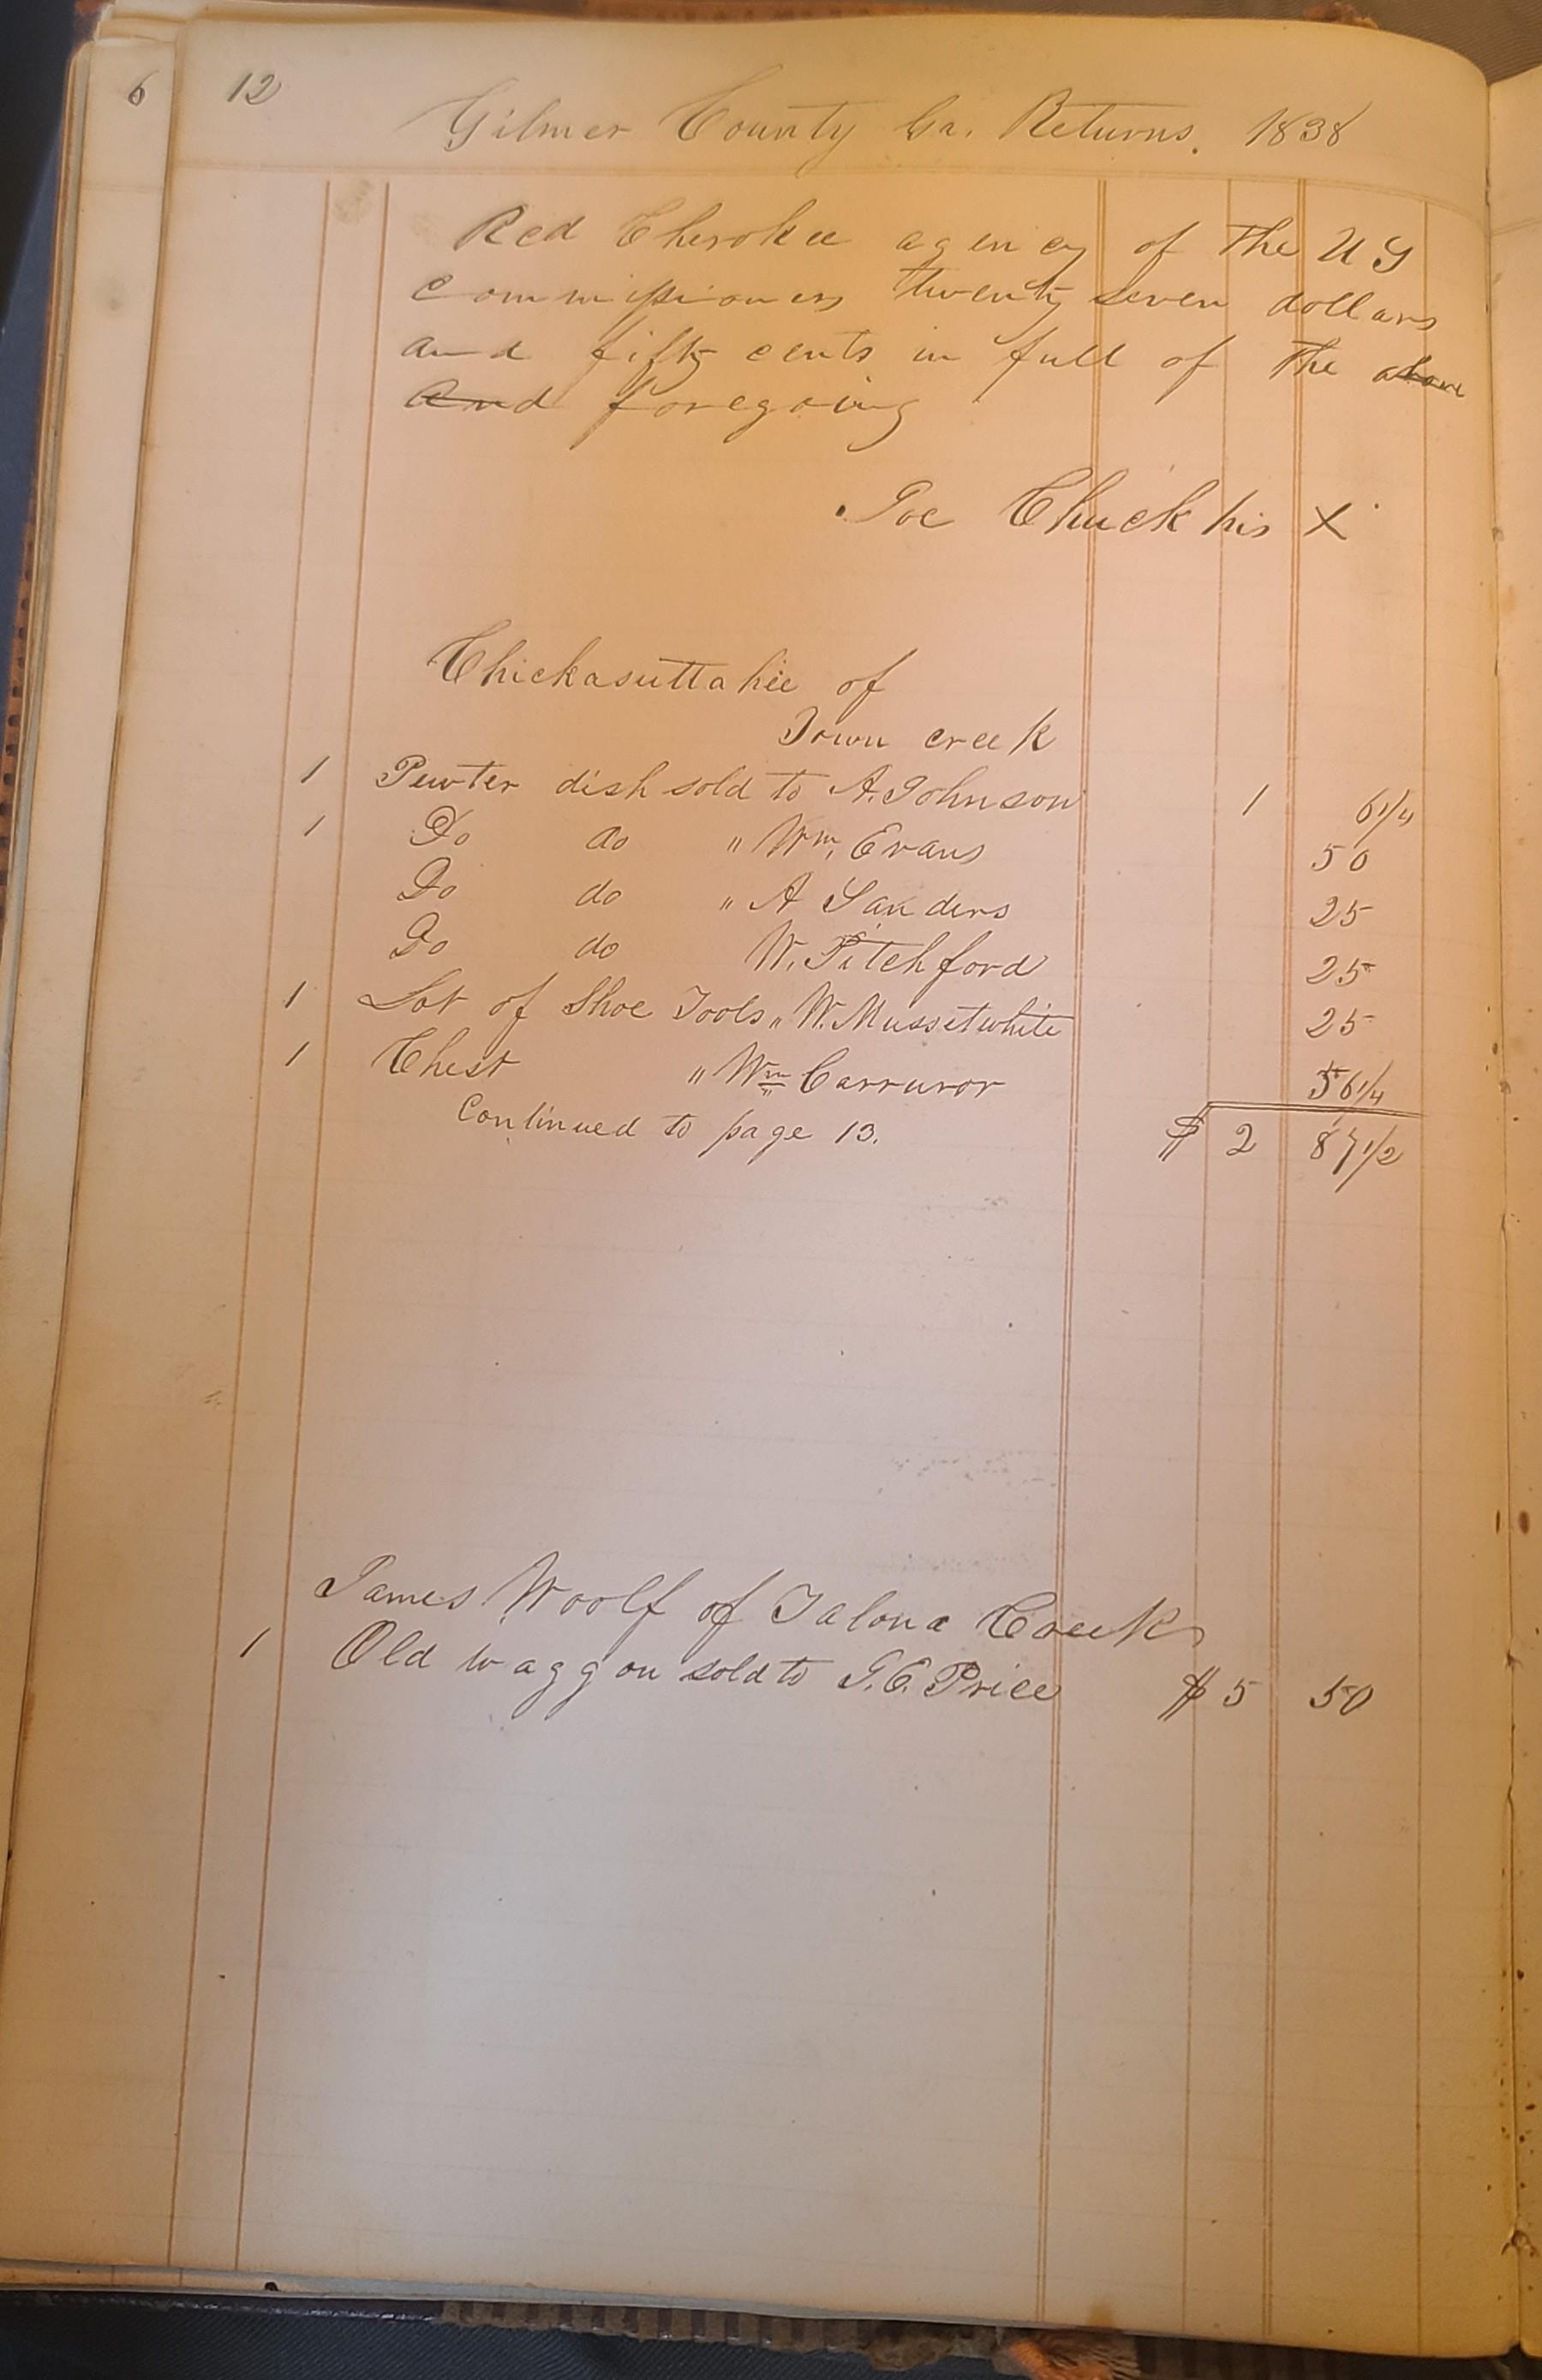 6 12
Gilmer County Ga. Returns. 1838
Red Cherokee agency of the U S
commissioners twenty seven dollars
and fifty cents in full of the above
and foregoing
Joe Chuck his X
Chickasuttahee of
Town creek
1 Pewter dish sold to A. Johnson 1 6 1/4
1 Do do " Wm. Evans 50
Do do " A Sanders 25
Do do W. Pitchford 25
1 Lot of Shoe Tools " W. Mussetwhite 25
1 Chest " Wm Carruror 56 1/4
Continued to page 13. $ 2 87 1/2
James Woolf of Talona Creek
1 Old waggon sold to G. E. Price $ 5 50